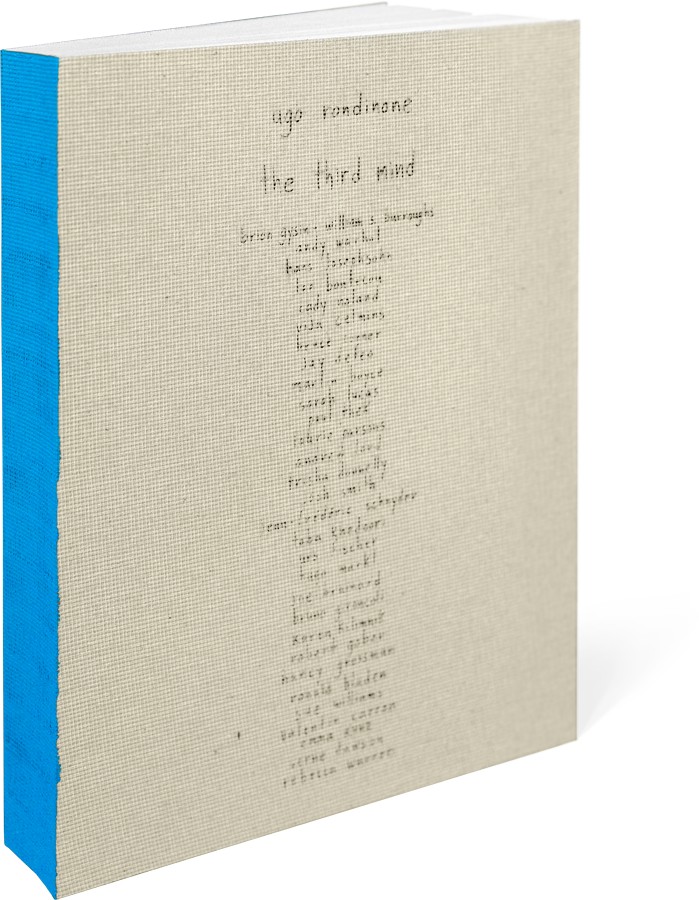 ugo rondinone
the third mind
brion gysin + william s. burroughs
andy warhol
hans josephsohn
lee bontecou
cady noland
vija celmins
bruce conner
jay defeo
martin boyce
sarah lucas
paul thek
laurie parsons
andrew lord
trisha donnelly
josh smith
jean-frédéric schnyder
toba khedoori
urs fischer
hugo markl
joe brainard
bruno gironcoli
karen kilimnik
robert gober
nancy grossman
ronald bladen
sue williams
valentin carron
emma kunz
verne dawson
rebecca warren